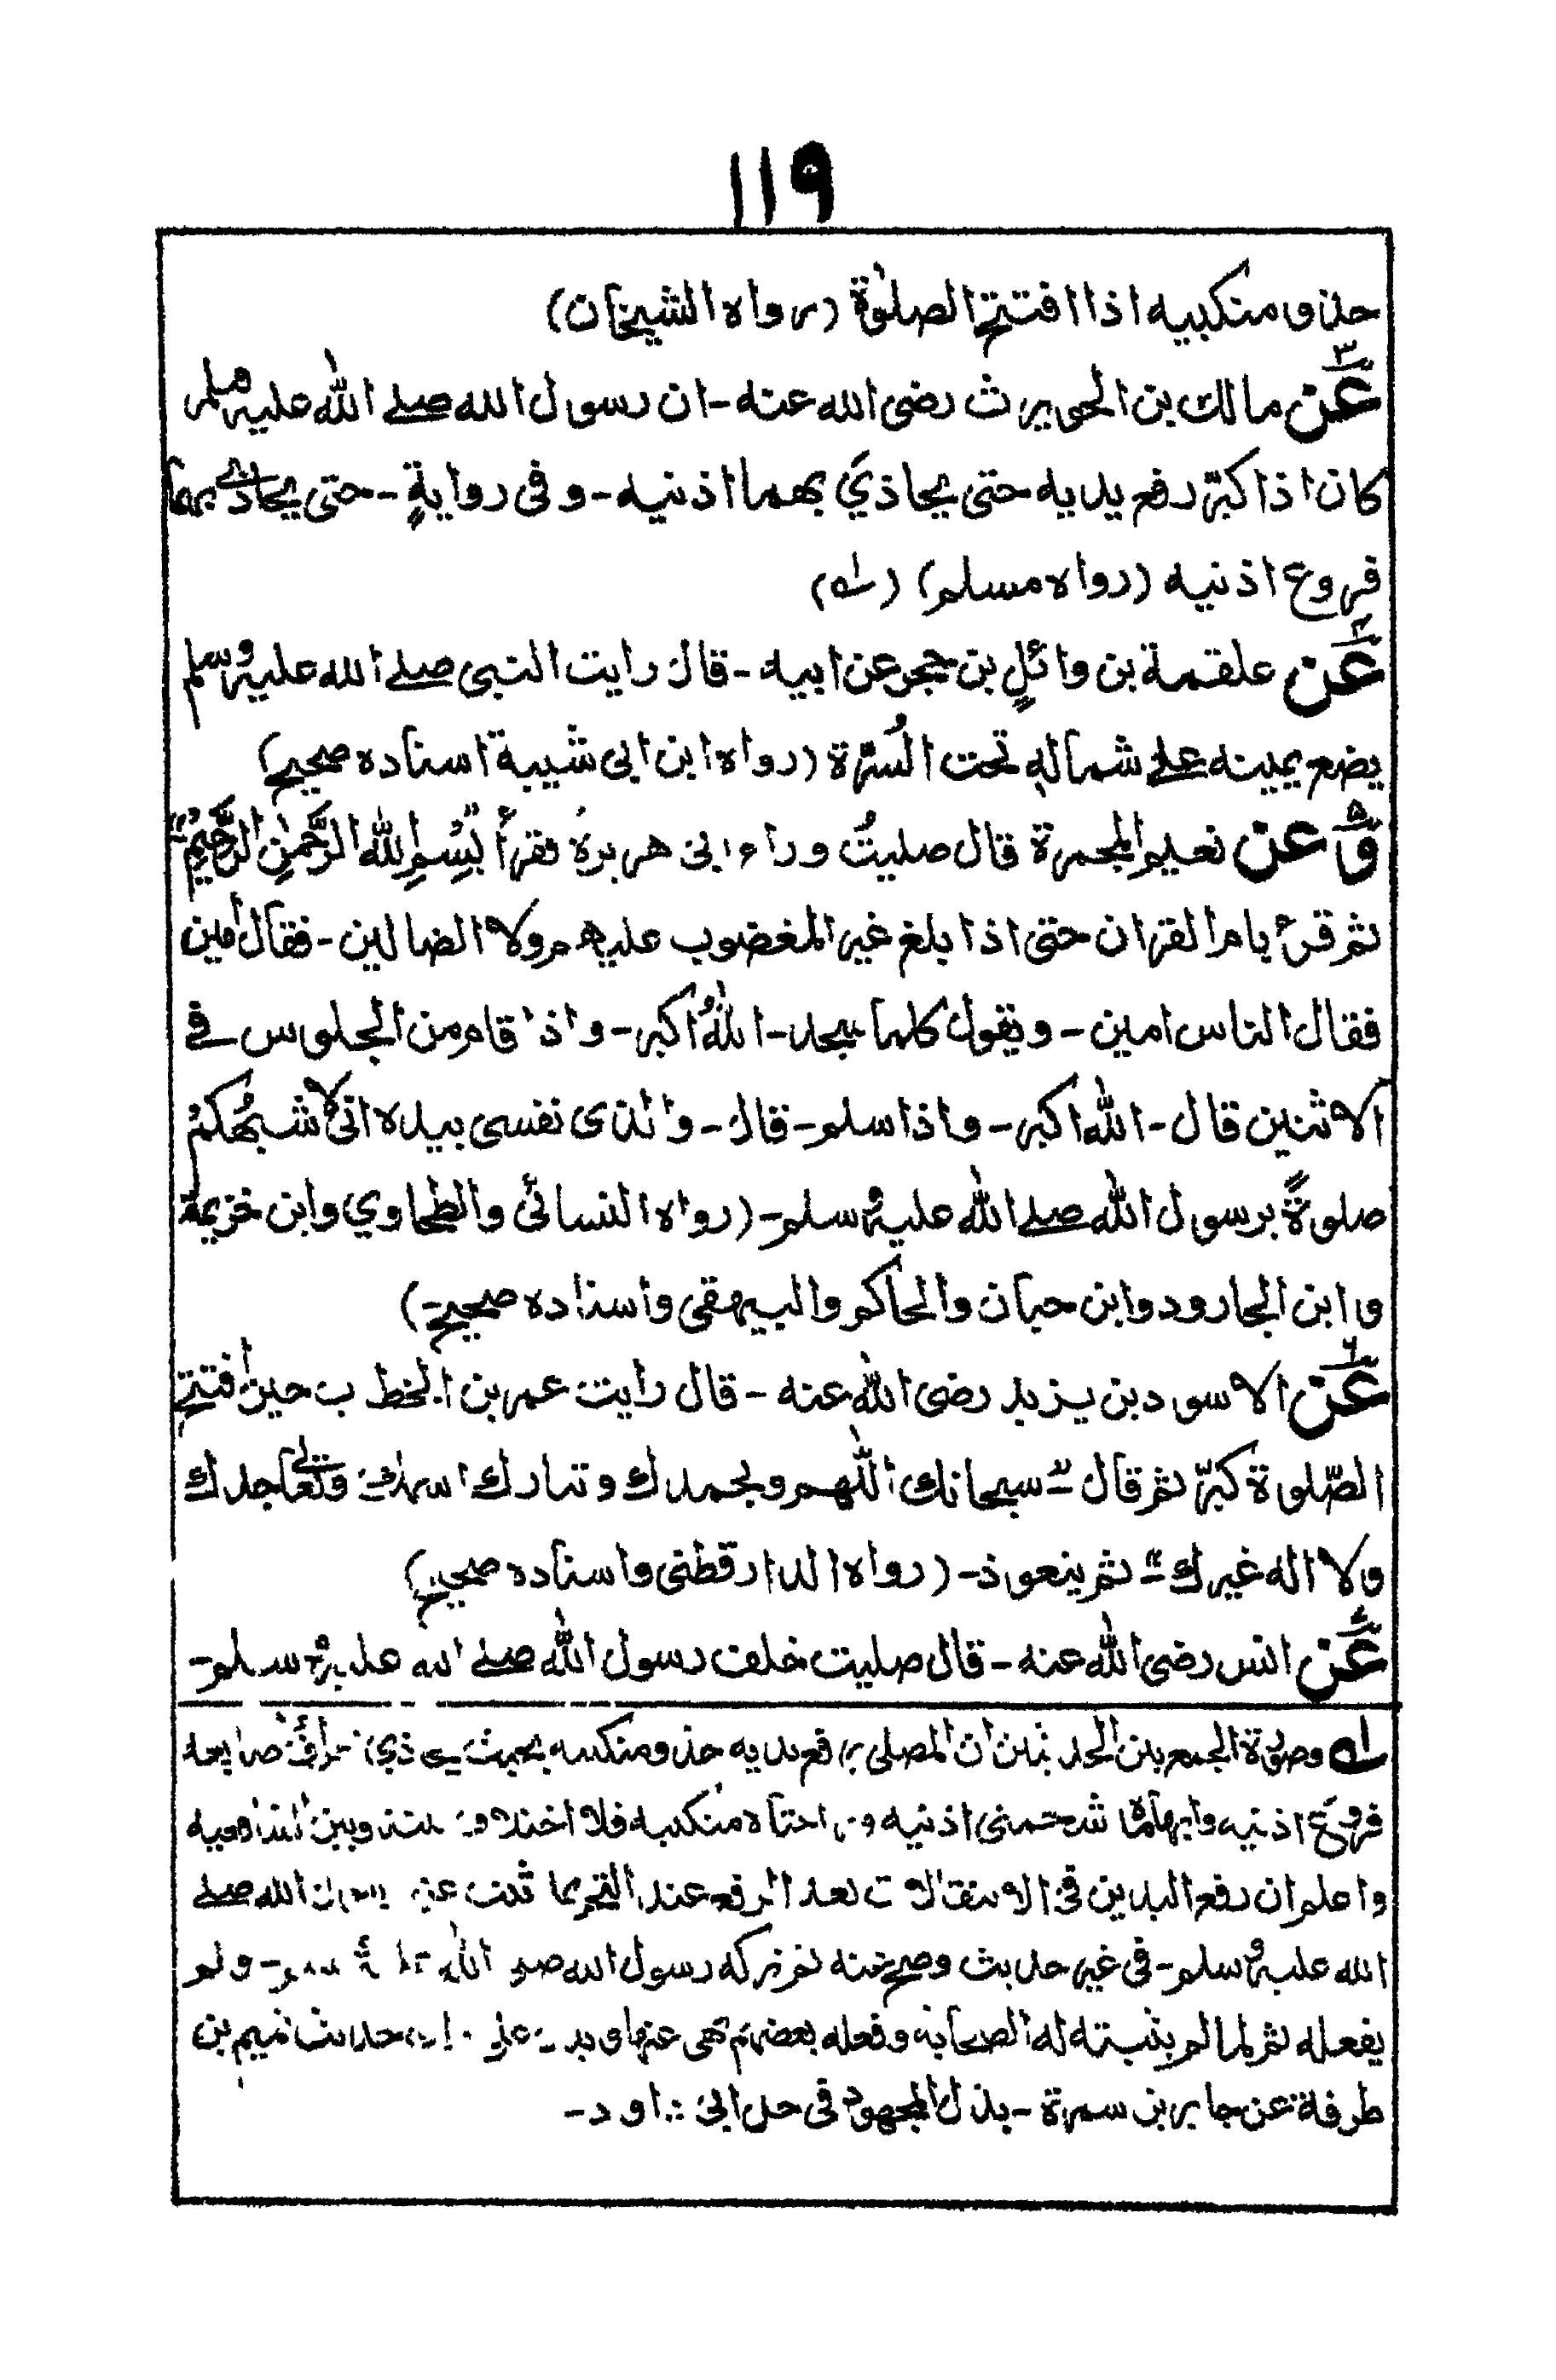 ١١٩
حذو منكبيه اذا افتتح الصلوٰة (رواه الشيخان)
٣ عَن مالك بن الحويرث رضى الله عنه - ان رسول الله صلے اللّٰه عليه وسلم
كان اذا كبّر رفع يديه حتى يحاذيَ بهما اذنيه - و فى روايةٍ - حتى يحاذي بهما
فروع اذنيه (رواه مسلم) (له)
٤ عَن علقمة بن وائلٍ بن حجر عن ابيه - قال رايت النبى صلے الله عليه وسلم
يضع يمينه علے شماله تحت السُرّة (رواه ابن ابى شيبة اسناده صحيح)
٥ وَعن نعيم المجمرة قال صليتُ وراء ابى هريرة فقرأ بِسْمِ اللّٰهِ الرَّحْمٰنِ الرَّحِيْمِ
ثم قرء بام القرآن حتى اذا بلغ غير المغضوب عليهم ولا الضالين - فقال آمين
فقال الناس امين - ويقول كلما سجد - اللّٰهُ اكبر - و اذا قام من الجلوس فے
الاثنين قال - اللّٰه اكبر - و اذا سلم - قال - والذى نفسى بيده انى لاشبهُكمْ
صلوةً برسول اللّٰه صلے اللّٰه عليه وسلم - (رواه النسائى والطحاوي وابن خزيمة
وابن الجارود وابن حبان والحاكم والبيهقى واسناده صحيح -)
٦ عَن الاسود بن يزيد رضى اللّٰه عنه - قال رايت عمر بن الخطاب حين افتتح
الصّلوة كبّر ثم قال " سبحانك اللّٰهم وبحمدك و تبارك اسمك وتعالى جدك
ولا اله غيرك " ثم يتعوذ - (رواه الدارقطنى واسناده صحيح)
٧ عَن انس رضى اللّٰه عنه - قال صليت خلف رسول اللّٰه صلے الله عليه وسلم -
له وصورة الجمع بين الحديثين ان المصلى يرفع يديه حذو منكبيه بحيث يحاذي اطراف اصابعه
فروع اذنيه وابهاماه شحمتى اذنيه و راحتاه منكبيه فلا اختلاف بيننا وبين الشافعيه
واعلم ان رفع اليدين فى الانتقالات بعد الرفع عند التحريما ثبت عن رسول الله صلے
الله عليه وسلم - فى غير حديث وصح عنه ثم تركه رسول الله صلے اللّٰه عليه وسلم - و لم
يفعله ثم لما لم يثبته له الصحابة و فعله بعضهم نهى عنها و يدل على حديث تميم بن
طرفة عن جابر بن سمرة - بذل المجهود فى حل ابى داود -